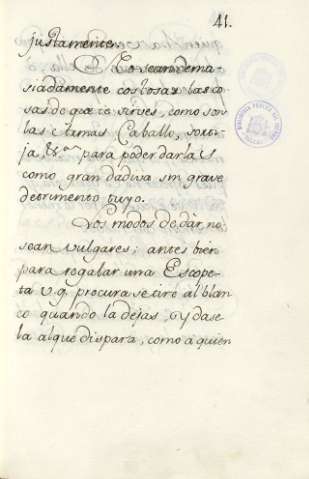 41.
justamente.
No sean dema
siadamente costosas las co
sas de que te sirves, como son
las Armas Caballo, sorti
ja, &.ª para poder darlas
como gran dadiva sin grave
detrimento tuyo.
Los modos de dár, no
sean vulgares; antes bien
para regalar una Escope
ta v.g. procura se tire al blan
co quando la dejas, y dase
la al que dispara, como à quien